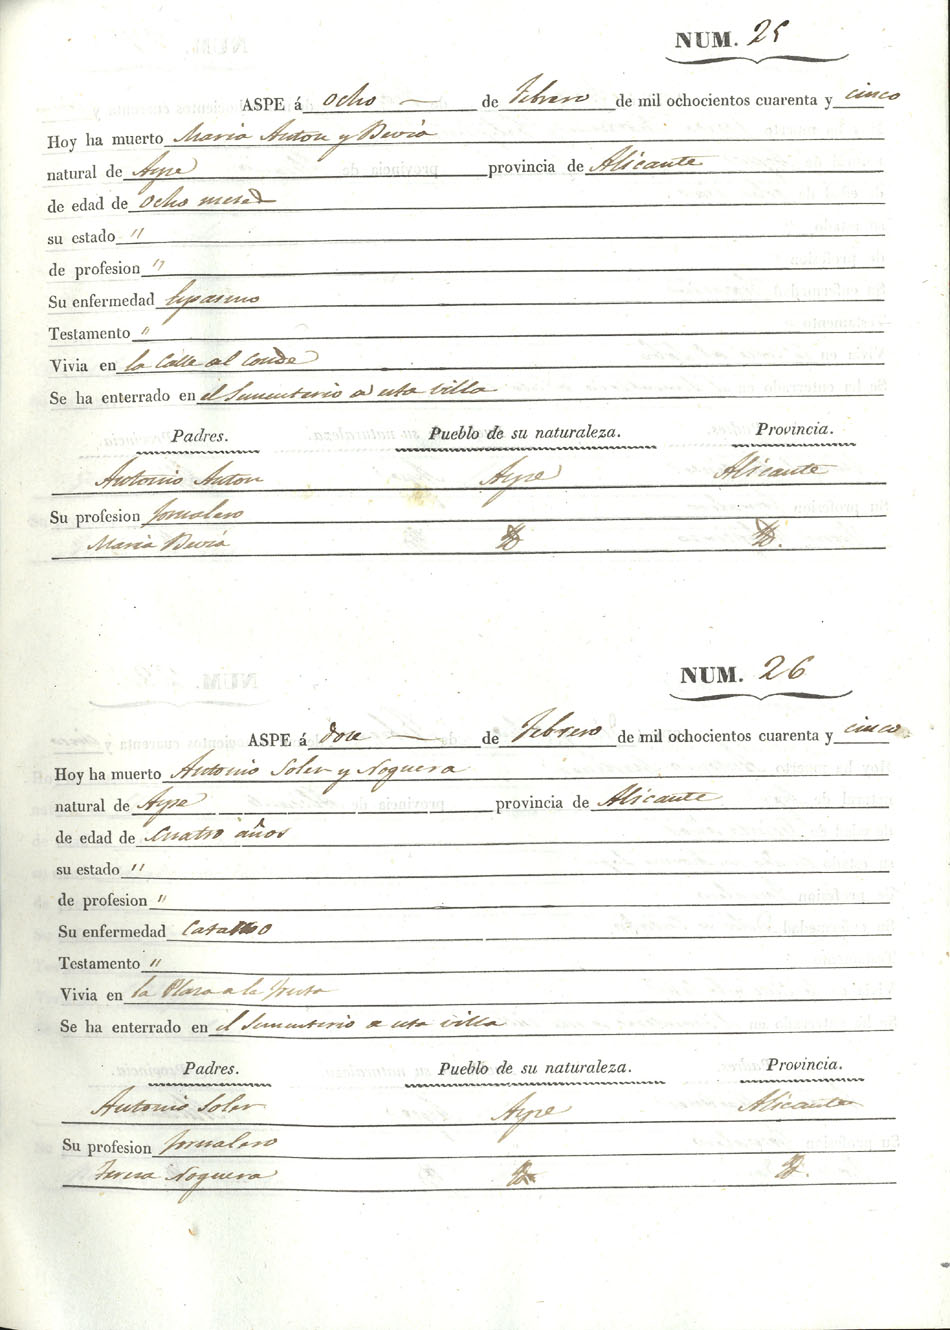 NUM. 25
ASPE á ocho de Febrero de mil ochocientos cuarenta y cinco
Hoy ha muerto Maria Anton y Beviá
natural de Aspe provincia de Alicante
de edad de ocho meses
su estado "
de profesion "
Su enfermedad
Testamento "
Vivia en la Calle del Conde
Se ha enterrado en el Sementerio de esta villa
Padres. Pueblo de su naturaleza. Provincia.
Antonio Anton Aspe Alicante
Su profesion Jornalero
Maria Beviá
NUM. 26
ASPE á doce de Febrero de mil ochocientos cuarenta y cinco
Hoy ha muerto Antonio Soler y Noguera
natural de Aspe provincia de Alicante
de edad de cuatro años
su estado "
de profesion "
Su enfermedad Catarro
Testamento "
Vivia en la Plaza de la fruta
Se ha enterrado en el Sementerio de esta villa
Padres. Pueblo de su naturaleza. Provincia.
Antonio Soler Aspe Alicante
Su profesion Jornalero
Teresa Noguera